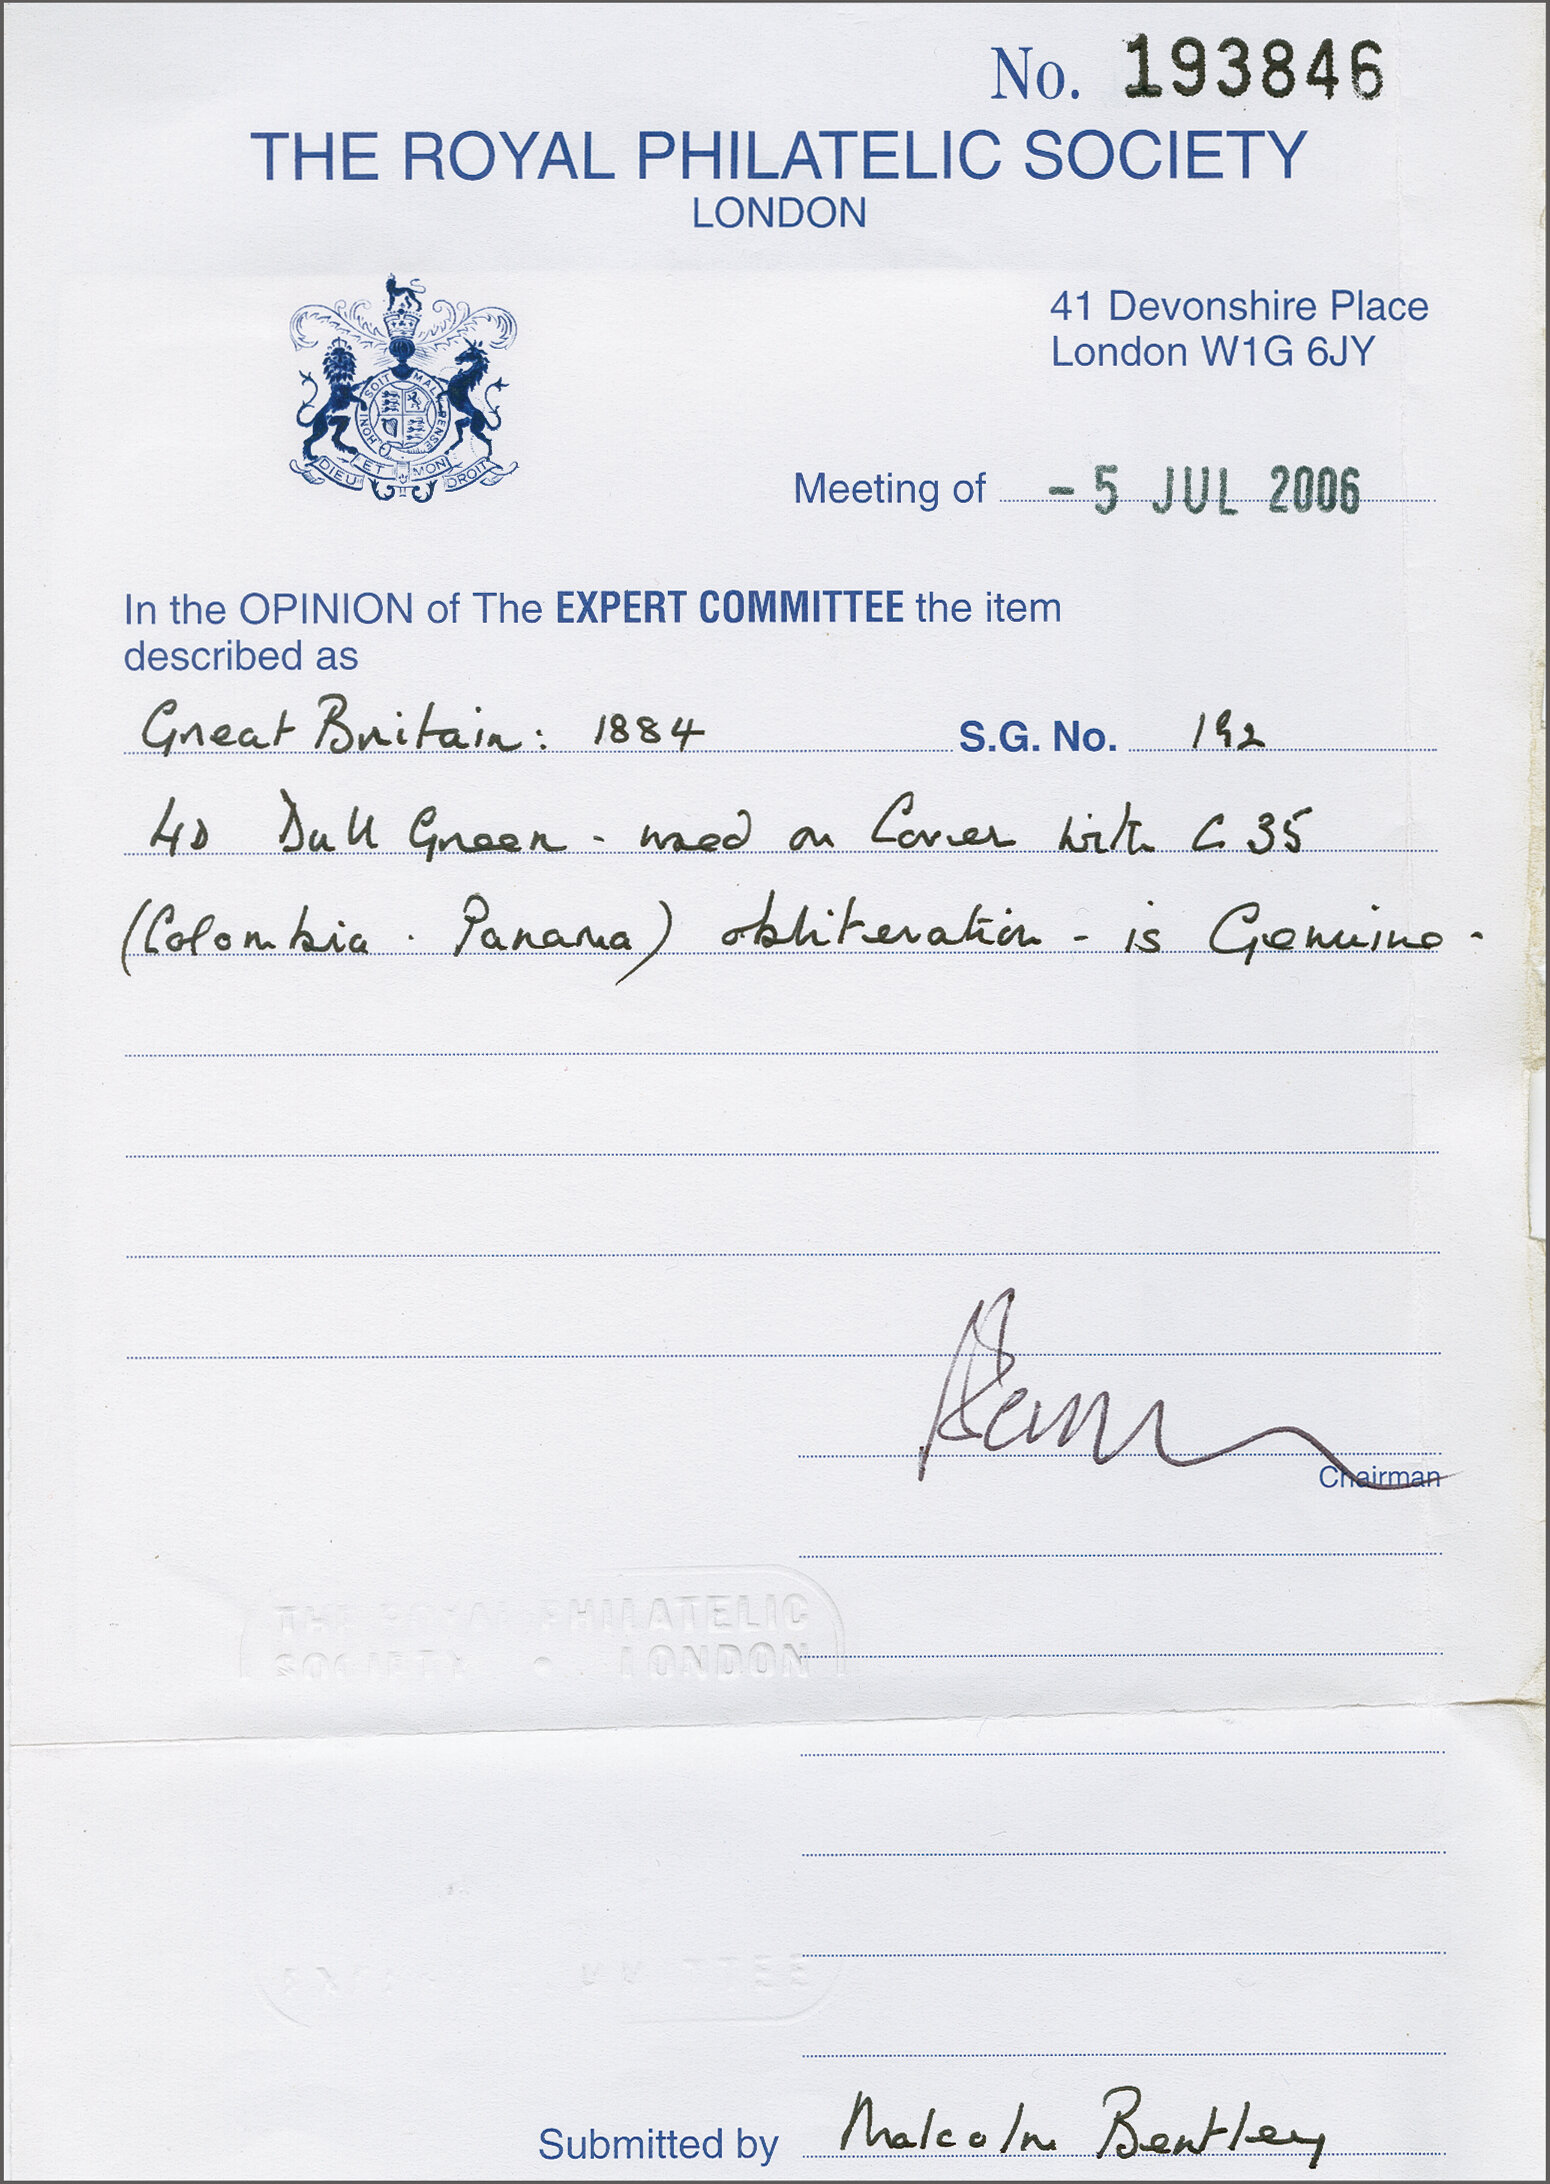 No. 193846
THE ROYAL PHILATELIC SOCIETY
LONDON
41 Devonshire Place
London W1G 6JY
HONI SOIT MAL PENSE
DIEU ET MON DROIT
Meeting of - 5 JUL 2006
In the OPINION of The EXPERT COMMITTEE the item
described as
Great Britain: 1884 S.G. No. 192
4D Dull Green - used on Cover with C35
(Colombia . Panama) obliteration - is Genuine -
Chairman
THE ROYAL PHILATELIC
SOCIETY • LONDON
Submitted by Malcolm Bentley